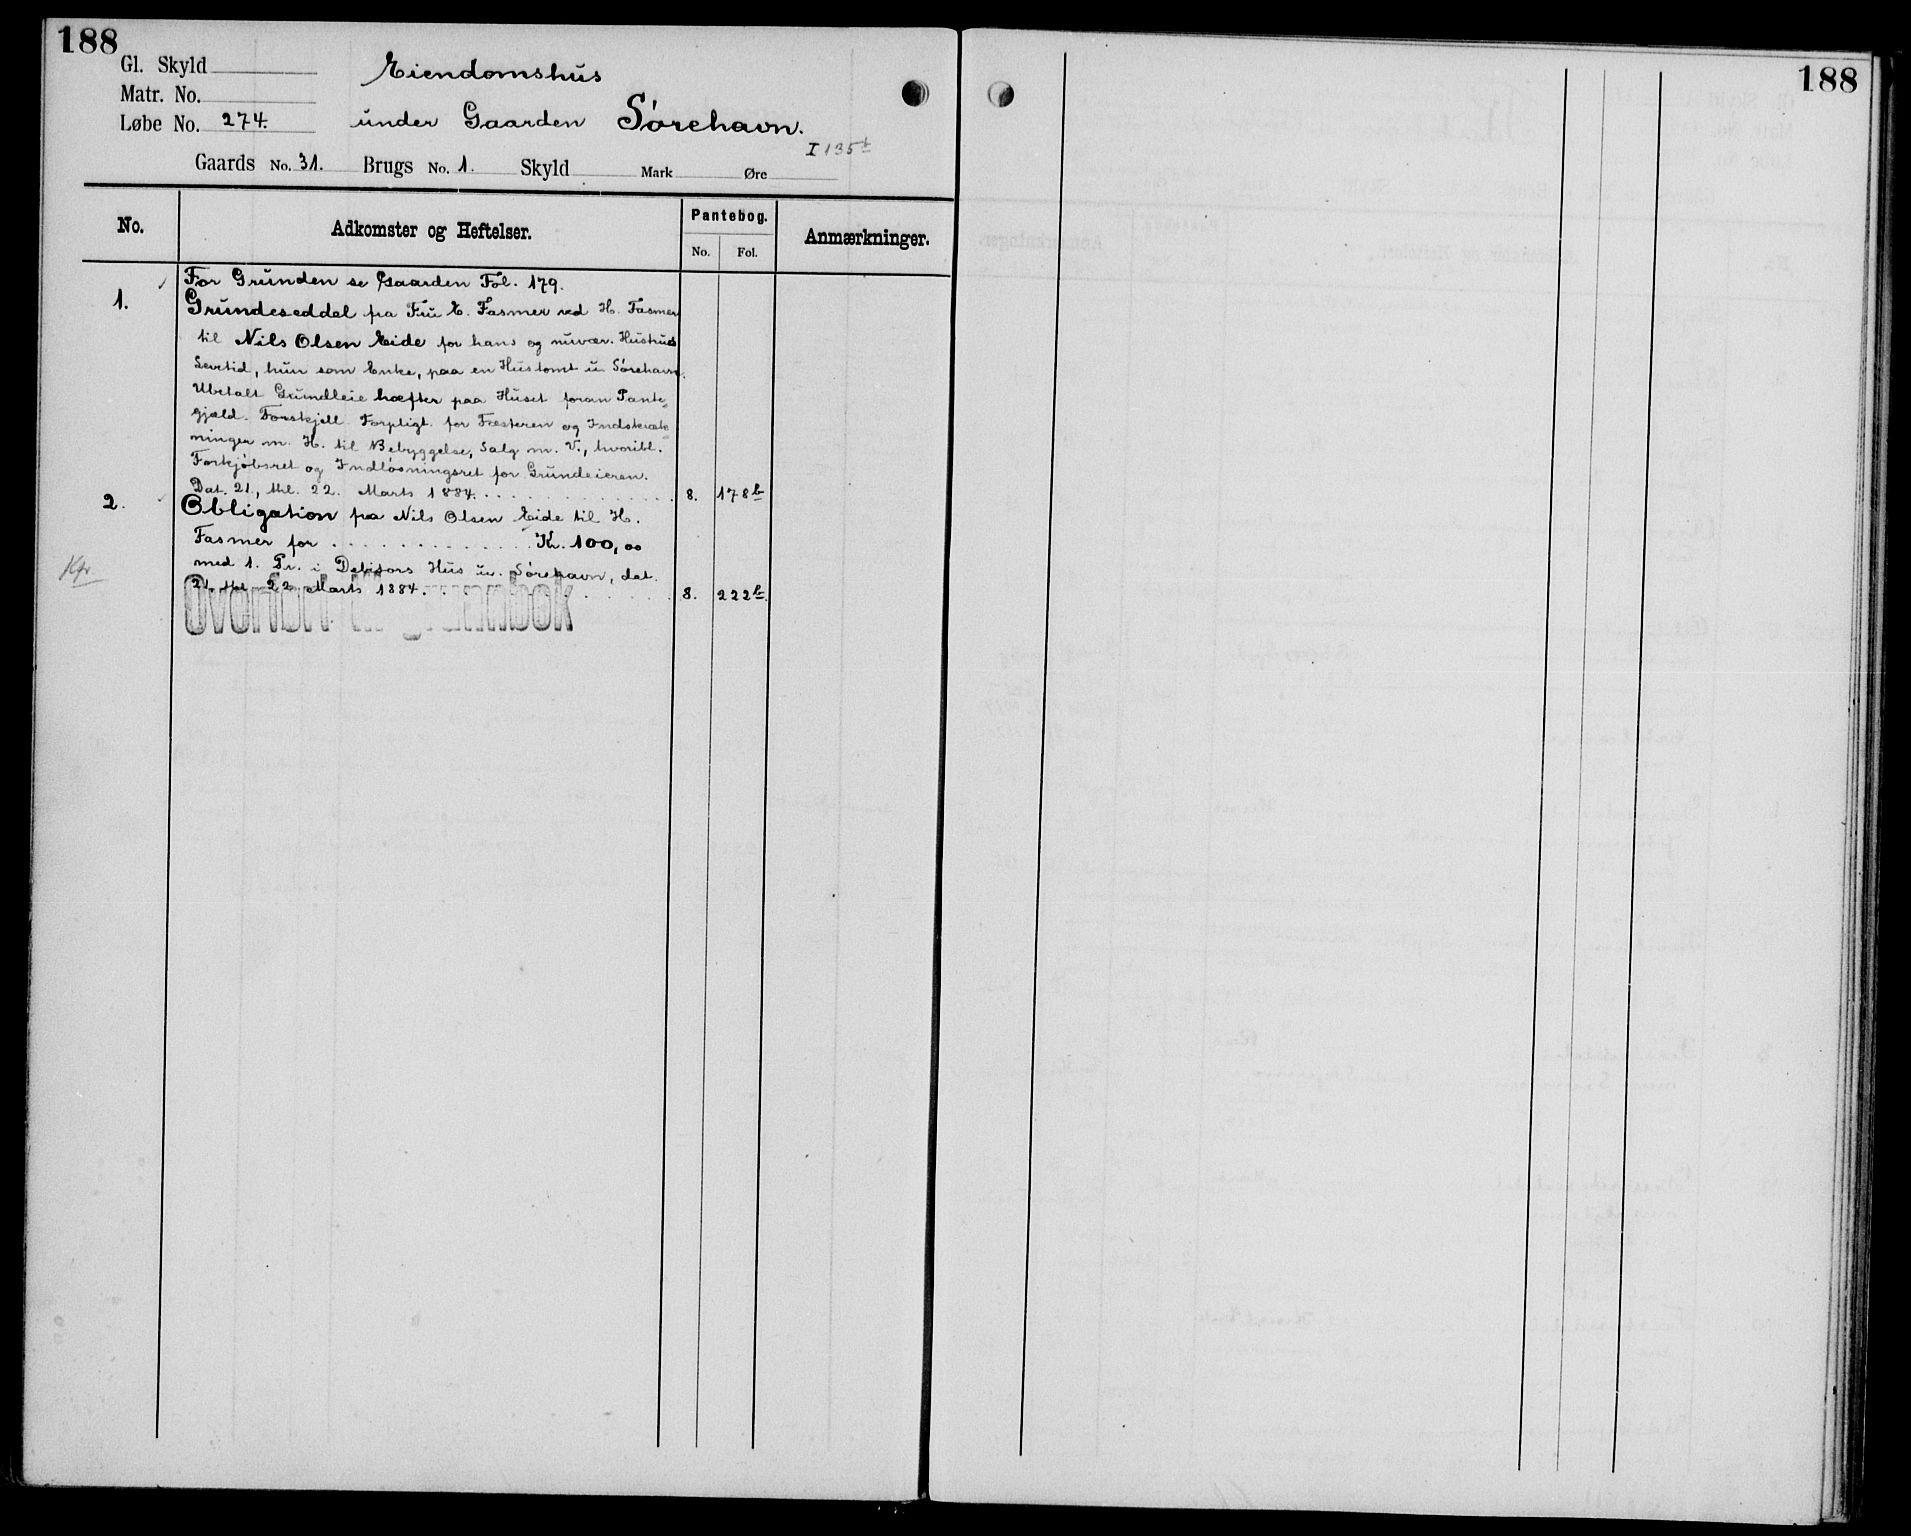 188
Gl. Skyld
Matr. No.
Løbe No. 274.
Eiendomshus
under Gaarden Sörehavn.
I 135
Gaards No. 31. Brugs No. 1. Skyld Mark Øre
No. Adkomster og Heftelser. Pantebog. Anmærkninger.
No. Fol.
For Grunden se Gaarden Fol. 179.
1. Grundeseddel fra Fru E. Fasmer ved H. Fasmer
til Nils Olsen Eide for hans og nuvær. Hustrus
Levetid, hun som Enke, paa en Hustomt u. Sörehavn.
Ubetalt Grundleie hæfter paa Huset foran Pante-
gjæld. Forskjell. Forpligt. for Fæsteren og Indskrænk-
ninger m. H. til Bebyggelse, Salg m. V., hvoribl.
Forkjöbsret og Indlösningsret for Grundeieren.
Dat. 21, thl. 22. Marts 1884. 8. 178b
2. Obligation fra Nils Olsen Eide til H.
Fasmer for Kr. 100,00
med 1. Pr. i Debitors Hus u. Sörehavn, dat.
21, thl. 22 Marts 1884. 8. 222b.
Overført til grunnbok
188